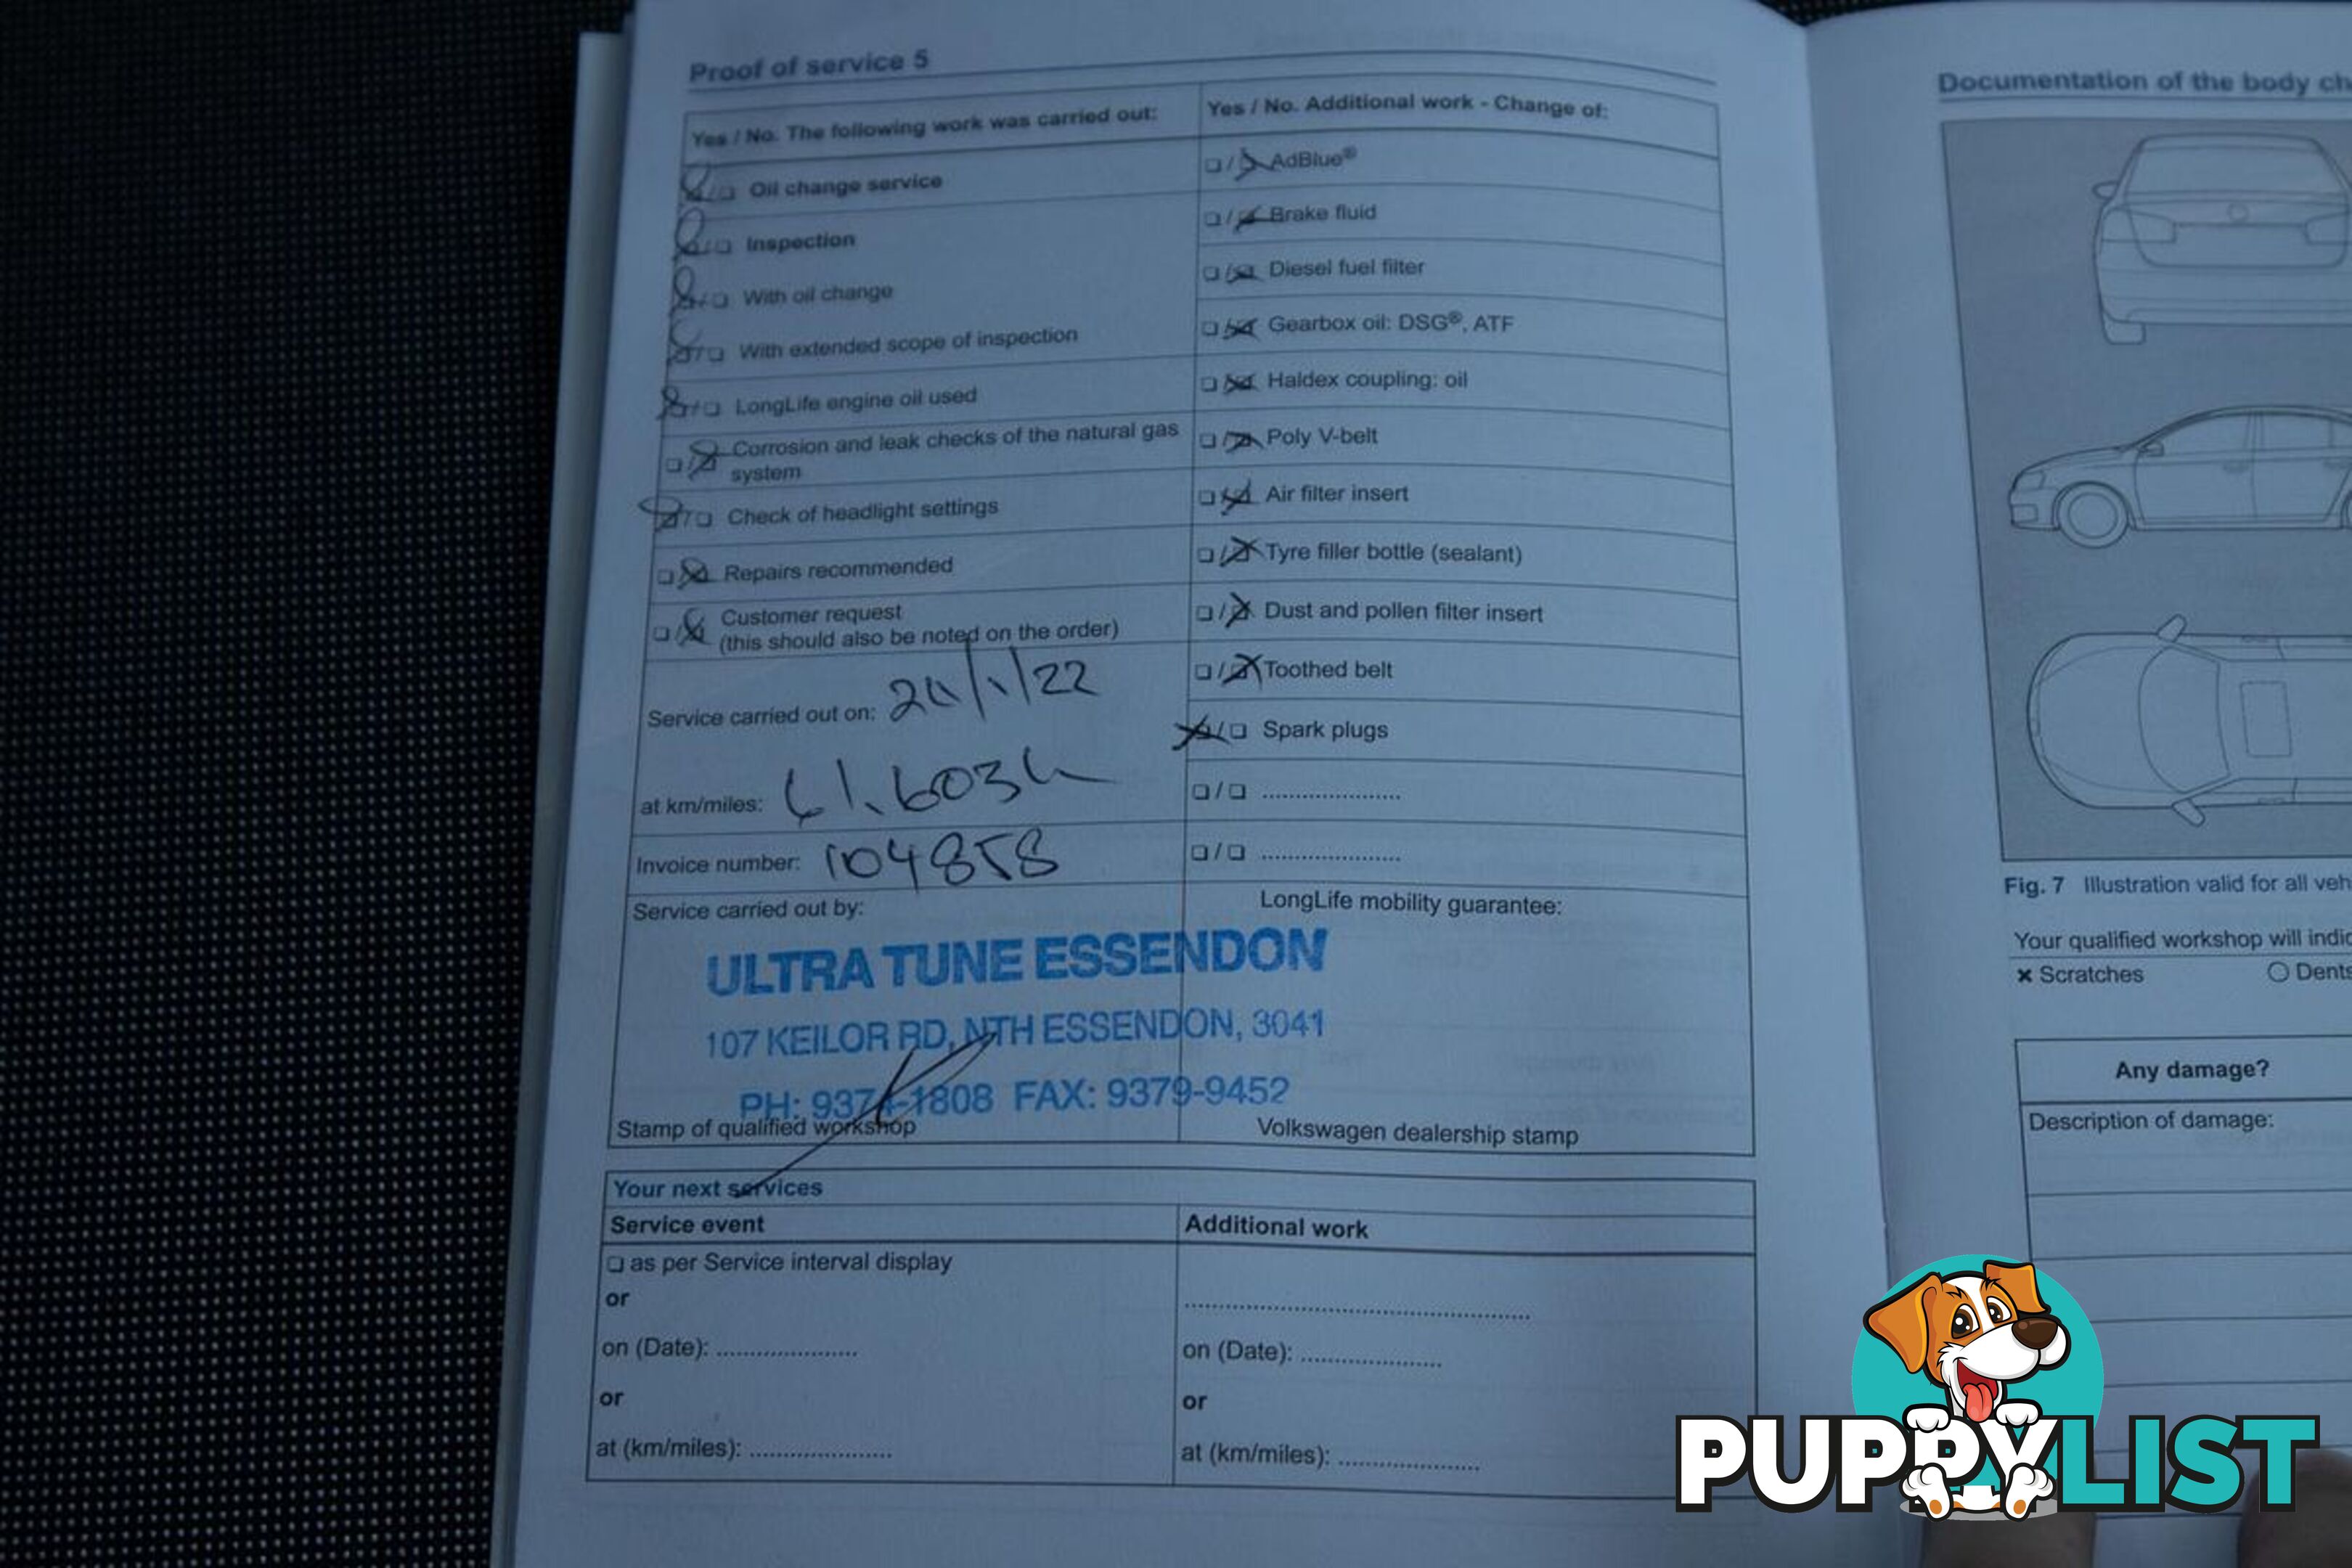 Proof of service 5
Yes / No. The following work was carried out:
❏/❏ Oil change service
❏/❏ Inspection
❏/❏ With oil change
❏/❏ With extended scope of inspection
❏/❏ LongLife engine oil used
❏/❏ Corrosion and leak checks of the natural gas
system
❏/❏ Check of headlight settings
❏/❏ Repairs recommended
❏/❏ Customer request
(this should also be noted on the order)
Service carried out on: /1/22
at km/miles: 61,603k
Invoice number: 104858
Service carried out by:
ULTRA TUNE ESSENDON
107 KEILOR RD, NTH ESSENDON, 3041
PH: 9374-1808 FAX: 9379-9452
Stamp of qualified workshop
Yes / No. Additional work - Change of:
❏/❏ AdBlue®
❏/❏ Brake fluid
❏/❏ Diesel fuel filter
❏/❏ Gearbox oil: DSG®, ATF
❏/❏ Haldex coupling: oil
❏/❏ Poly V-belt
❏/❏ Air filter insert
❏/❏ Tyre filler bottle (sealant)
❏/❏ Dust and pollen filter insert
❏/❏ Toothed belt
❏/❏ Spark plugs
❏/❏ .....................
❏/❏ .....................
LongLife mobility guarantee:
Volkswagen dealership stamp
Your next services
Service event
❏ as per Service interval display
or
on (Date): .....................
or
at (km/miles): .....................
Additional work
....................................................
on (Date): .....................
or
at (km/miles): .....................
Documentation of the body ch
Fig. 7 Illustration valid for all veh
Your qualified workshop will indic
× Scratches ○ Dents
Any damage?
Description of damage:
PUPPYLIST